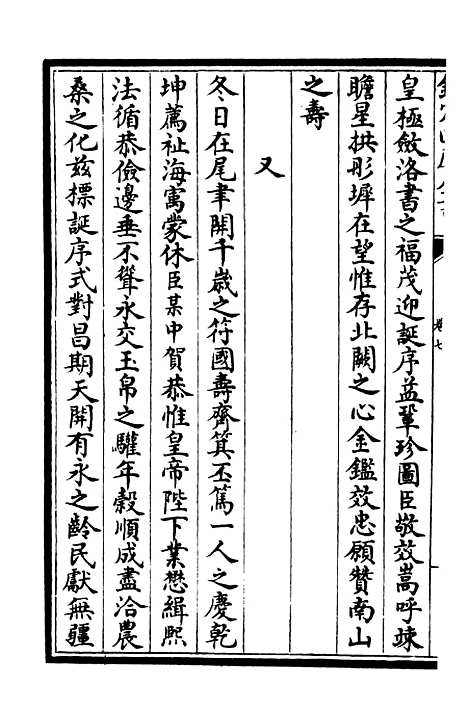 皇極斂洛書之福茂迎誕序益鞏珍圖臣敬效嵩呼竦
瞻星拱彤墀在望惟存北闕之心金鑑效忠願贊南山
之壽
又
冬日在尾聿開千歲之符國壽齊箕丕篤一人之慶乾
坤薦祉海㝢蒙休臣某中賀恭惟皇帝陛下業懋緝熙
法循恭儉邊垂不聳永交玉帛之驩年穀順成盡洽農
桑之化玆標誕序式對昌期天開有永之齡民獻無疆
卷七